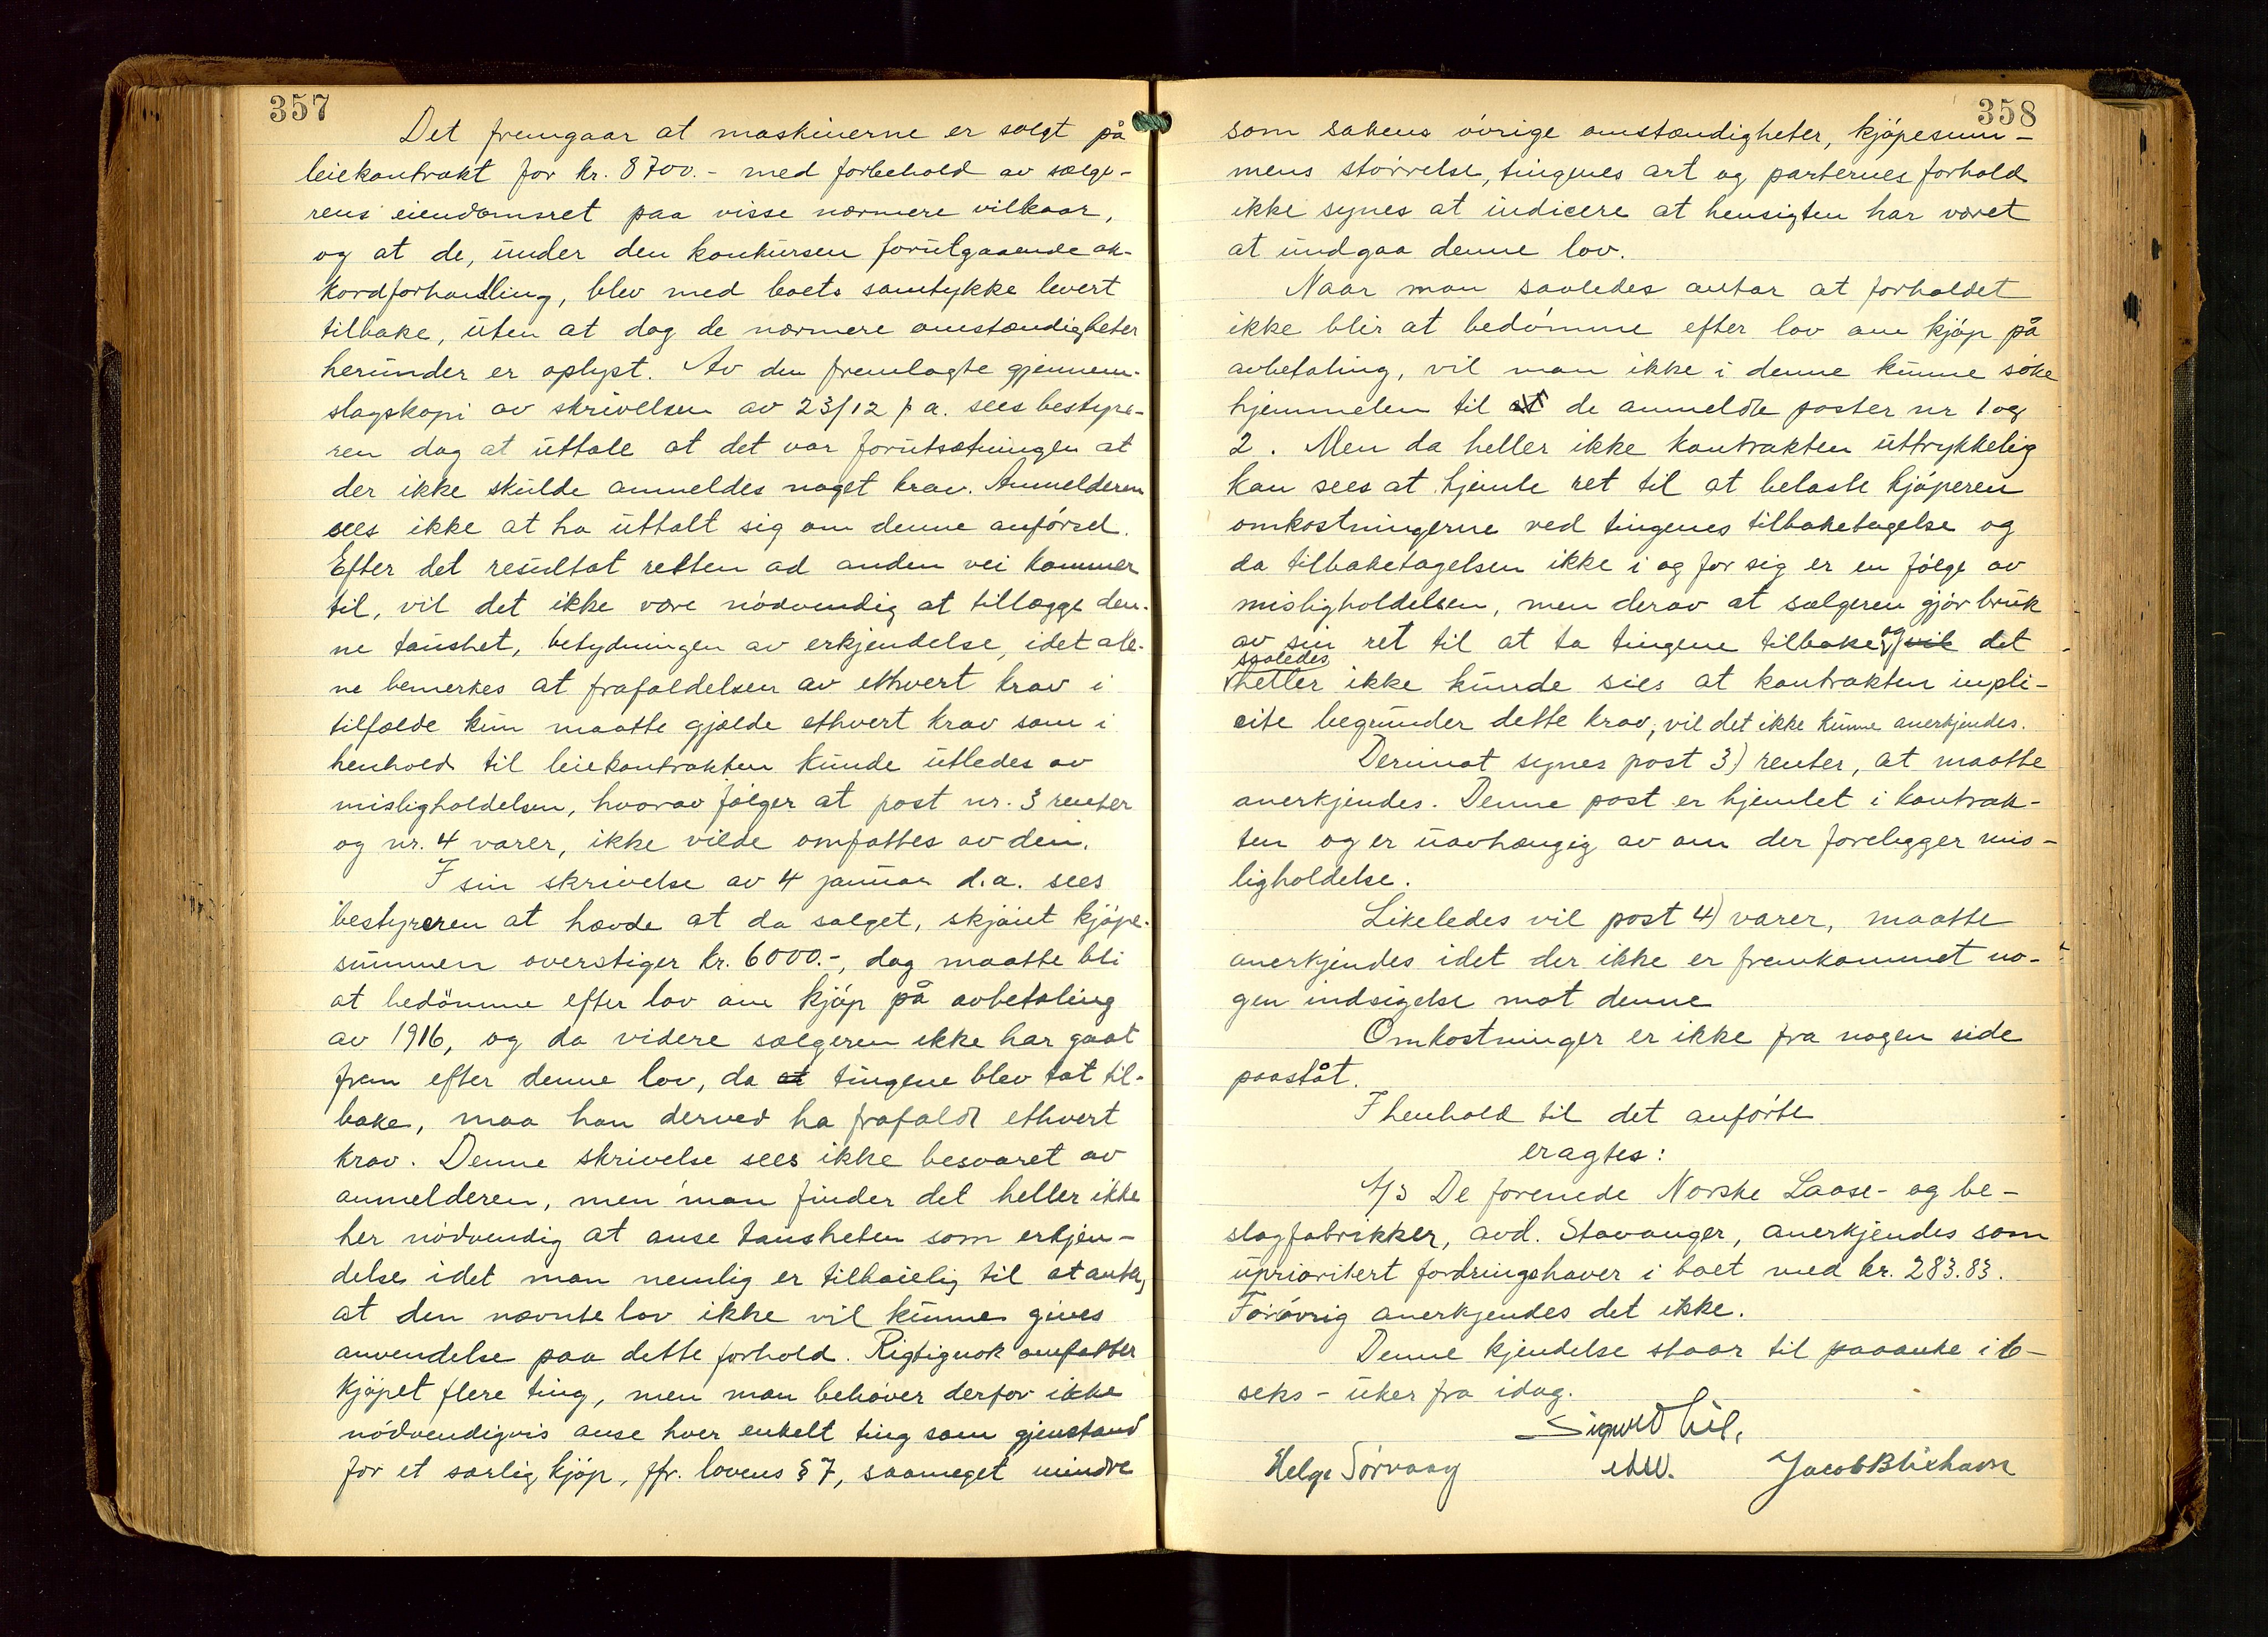 357
Det fremgaar at maskinerne er solgt på
leiekontrakt for kr. 8700.- med forbehold av sælge-
rens eiendomsret paa visse nærmere vilkaar,
og at de, under den konkursen forutgaaende ak-
kordforhandling, blev med boets samtykke levert
tilbake, uten at dog de nærmere omstændigheter
herunder er oplyst. Av den fremlagte gjennem-
slagskopi av skrivelsen av 23/12 f a. sees bestyre-
ren dog at uttale at det var forutsætningen at
der ikke skulde anmeldes noget krav. Anmelderen
sees ikke at ha uttalt sig om denne anførsel.
Efter det resultat retten ad anden vei kommer
til, vil det ikke være nødvendig at tillægge den-
ne taushet, betydningen av erkjendelse, idet ale-
ne bemerkes at frafaldelsen av ethvert krav i
tilfælde kun maatte gjælde ethvert krav som i
henhold til leiekontrakten kunde utledes av
misligholdelsen, hvorav følger at post nr. 3 renter
og nr. 4 varer, ikke vilde omfattes av den.
I sin skrivelse av 4 januar d.a. sees
bestyreren at hævde at da salget, skjønt kjøpe-
summen overstiger kr. 6000.-, dog maatte bli
at bedømme efter lov om kjøp på avbetaling
av 1916, og da videre sælgeren ikke har gaat
frem efter denne lov, da at tingene blev tat til-
bake, maa han derved ha frafaldt ethvert
krav. Denne skrivelse sees ikke besvaret av
anmelderen, men man finder det heller ikke
her nødvendig at anse tausheten som erkjen-
delse idet man nemlig er tilbøielig til at anta,
at den nævnte lov ikke vil kunne gives
anvendelse paa dette forhold. Rigtignok omfatter
kjøpet flere ting, men man behøver derfor ikke
nødvendigvis anse hver enkelt ting som gjenstand
for et særlig kjøp, jfr. lovens § 7, saameget mindre
358
som sakens øvrige omstændigheter, kjøpesum-
mens størrelse, tingenes art og parternes forhold
ikke synes at indicere at hensigten har været
at undgaa denne lov.
Naar man saaledes antar at forholdet
ikke blir at bedømme efter lov om kjøp på
avbetaling, vil man ikke i denne kunne søke
hjemmelen til at de anmeldte poster nr 1 og
2. Men da heller ikke kontrakten uttrykkelig
kan sees at hjemle ret til at belaste kjøperen
omkostningerne ved tingenes tilbaketagelse og
da tilbaketagelsen ikke i og for sig er en følge av
misligholdelsen, men derav at sælgeren gjør bruk
av sin ret til at ta tingene tilbake, og vil det
saaledes
heller ikke kunde sies at kontrakten inpli-
cite begrunder dette krav, vil det ikke kunne anerkjendes.
Derimot synes post 3) renter, at maatte
anerkjendes. Denne post er hjemlet i kontrak-
ten og er uavhængig av om der foreligger mis-
ligholdelse.
Likeledes vil post 4) varer, maatte
anerkjendes idet der ikke er fremkommet no-
gen indsigelse mot denne
Omkostninger er ikke fra nogen side
paaståt.
I henhold til det anførte
eragtes:
A/S De forenede Norske Laase- og be-
slagfabrikker, avd. Stavanger, anerkjendes som
uprioritert fordringshaver i boet med kr. 283.83.
Forøvrig anerkjendes det ikke.
Denne kjendelse staar til paaanke i 6-
seks - uker fra idag.
Helge Sørvaag
Jacob Blixhavn